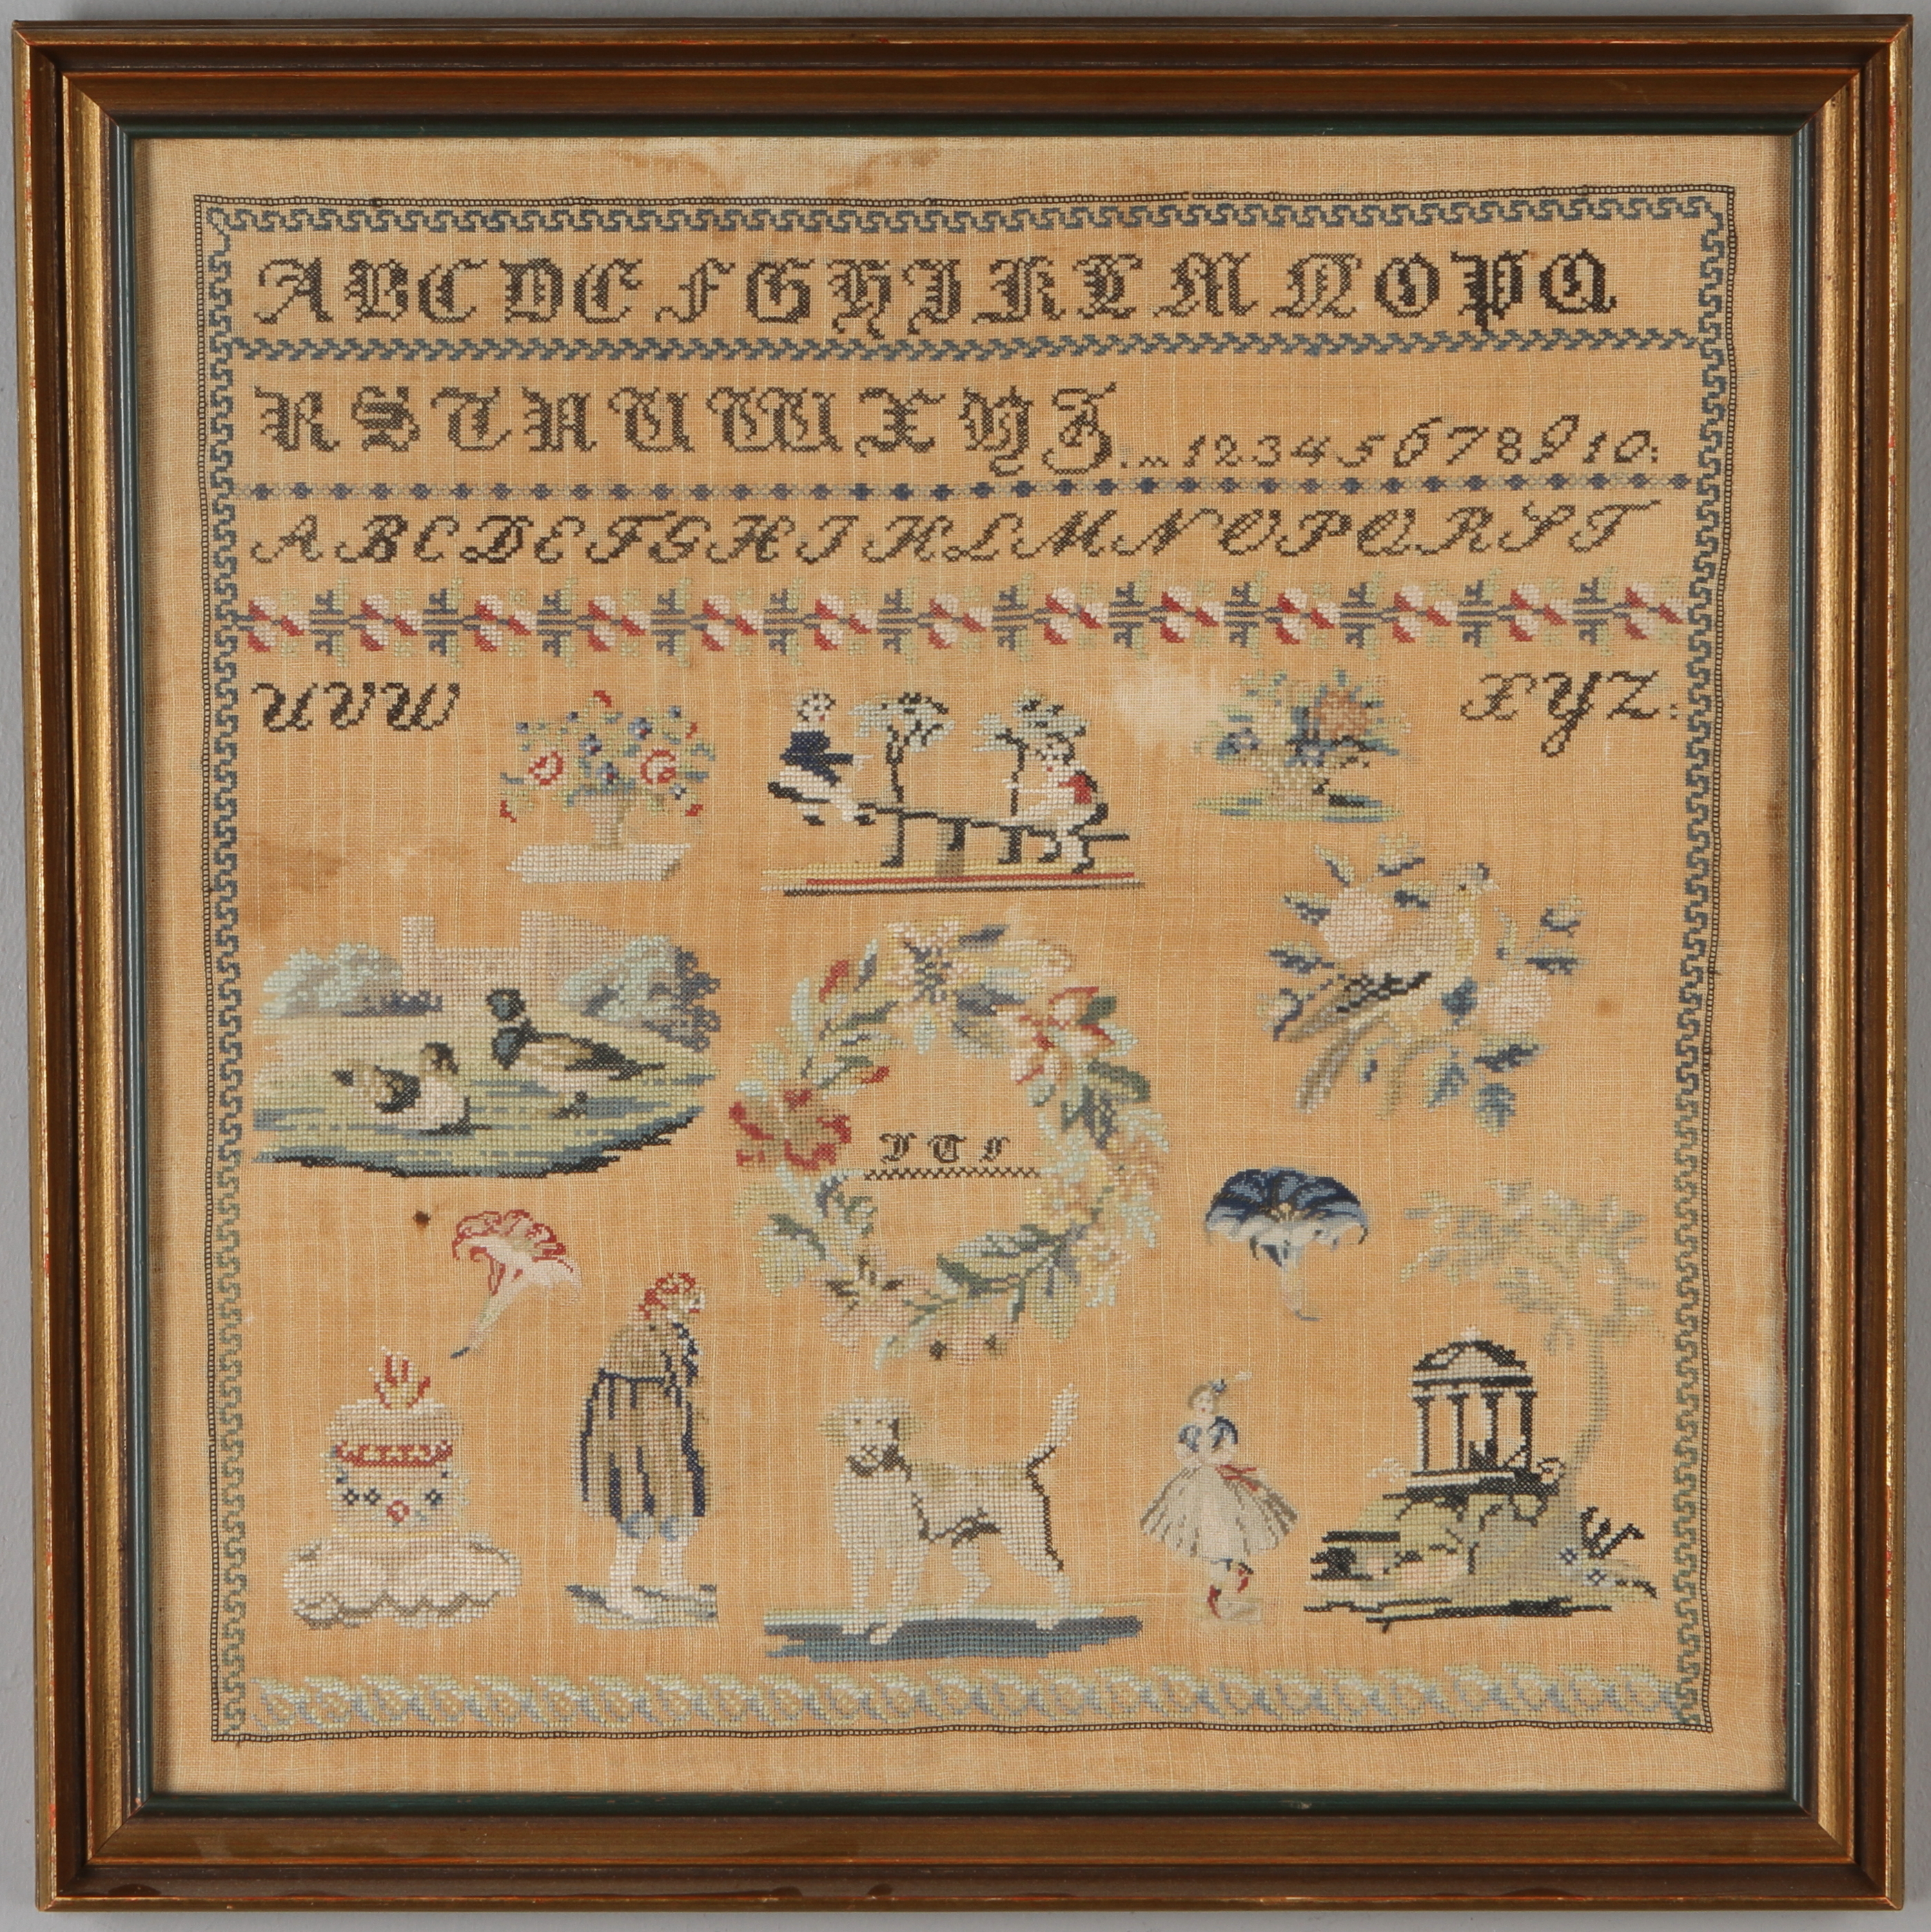 A B C D E F G H I K L M N O P Q
R S T U V W X Y Z . 1 2 3 4 5 6 7 8 9 10:
A B C D E F G H I K L M N O P Q R S T
U V W X Y Z: